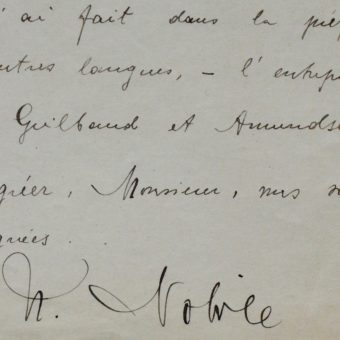 ai fait dans la
autres langues, – l'
Guilbaud et Amundse
agréer, Monsieur, mes
N. Nobile